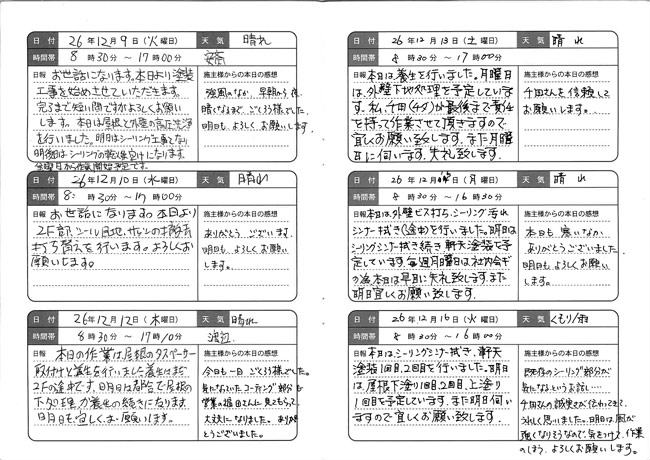 日付 26年12月9日(火曜日) 天気 晴れ
時間帯 8時30分 〜 17時00分
日報 お世話になります。本日より塗装
工事を始めさせていただきます。
完了まで短い間ですがよろしくお願い
します。本日は屋根と外壁の高圧洗浄
を行いました。明日はシーリング工事となり
明後日はシーリングの乾燥
金曜日から作業開始予定です。
施主様からの本日の感想
強風のなか、早朝から夜
暗くなるまで、ごくろう様でした。
明日も、よろしくお願いします。
日付 26年12月10日(水曜日) 天気 晴れ
時間帯 8時30分 〜 17時00分
日報 お世話になります。本日より
2F部シール目地、サッシの撤去
打ち替えを行います。よろしくお
願いします。
施主様からの本日の感想
ありがとうございます。
明日も、よろしくお願い
します。
日付 26年12月12日(木曜日) 天気 晴れ
時間帯 8時30分 〜 17時10分 渡辺
日報 本日の作業は屋根のタスペーサー
取付けと養生を行いました養生はまだ
2Fの途中です。明日は屋根の
下処理か養生の続きになります
明日も宜しくお願いします。
施主様からの本日の感想
今日も一日ごくろう様でした。
気になっていたコーチング部分も
営業の福田さんに見てもらって
大丈夫になりました。ありが
とうございました。
日付 26年12月13日(土曜日) 天気 晴れ
時間帯 8時30分 〜 17時00分
日報 本日は養生を行いました。月曜日
は、外壁下地処理を予定していま
す。私、千田(チダ)が最後まで責任
を持って作業させて頂きますので
宜しくお願い致します。また月曜
日に伺います。失礼致します。
施主様からの本日の感想
千田さんを信頼して
お願いします。
日付 26年12月15日(月曜日) 天気 晴れ
時間帯 8時30分 〜 16時30分
日報 本日は、外壁ビス打ち、シーリング汚れ
シンナー拭き(途中)を行いました。明日は
シーリングシンナー拭き続き、軒天塗装を予
定しています。毎週月曜日は社内会ギ
の為、本日は早目に失礼致します。また
明日宜しくお願い致します。
施主様からの本日の感想
本日も寒いなか、
ありがとうございました。
明日も、よろしくお願い
します。
日付 26年12月16日(火曜日) 天気 くもり/雨
時間帯 8時30分 〜 16時00分
日報 本日は、シーリングシンナー拭き、軒天
塗装1回目、2回目を行いました。明日
は、屋根下塗り1回目、2回目、上塗り
1回目を予定しています。また明日伺い
ますので宜しくお願い致します。
施主様からの本日の感想
既存のシーリング部分が
気になるというお話し…
千田さんの誠実さが伝わってきて、
うれしく思いました。明日は風が
強くなりそうなので、気をつけて、作業
のほう、よろしくお願いします。